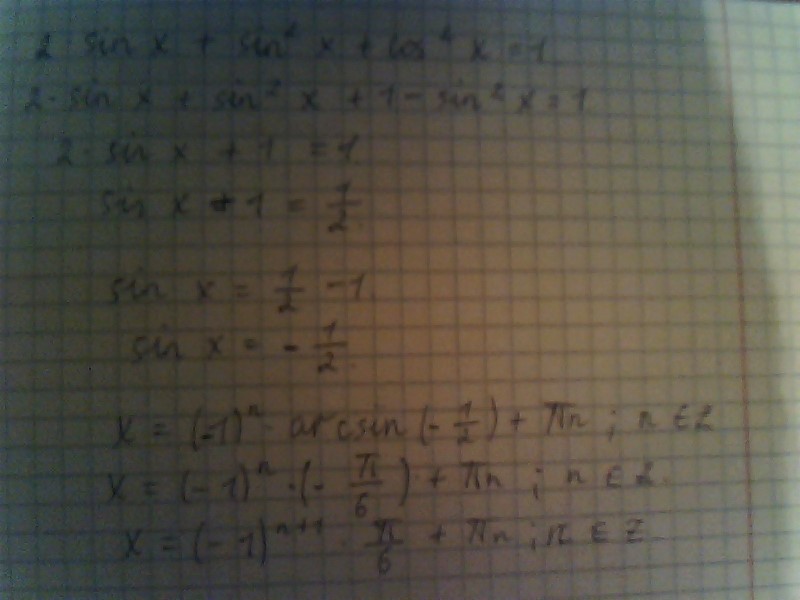 2 · sin x + sin² x + cos² x = 1
2 · sin x + sin² x + 1 - sin² x = 1
2 · sin x + 1 = 1
sin x + 1 = 1/2
sin x = 1/2 - 1
sin x = - 1/2
x = (-1)ⁿ · arcsin (- 1/2) + πn ; n ∈ Z
x = (-1)ⁿ · (- π/6) + πn ; n ∈ Z
x = (-1)ⁿ⁺¹ · π/6 + πn ; n ∈ Z